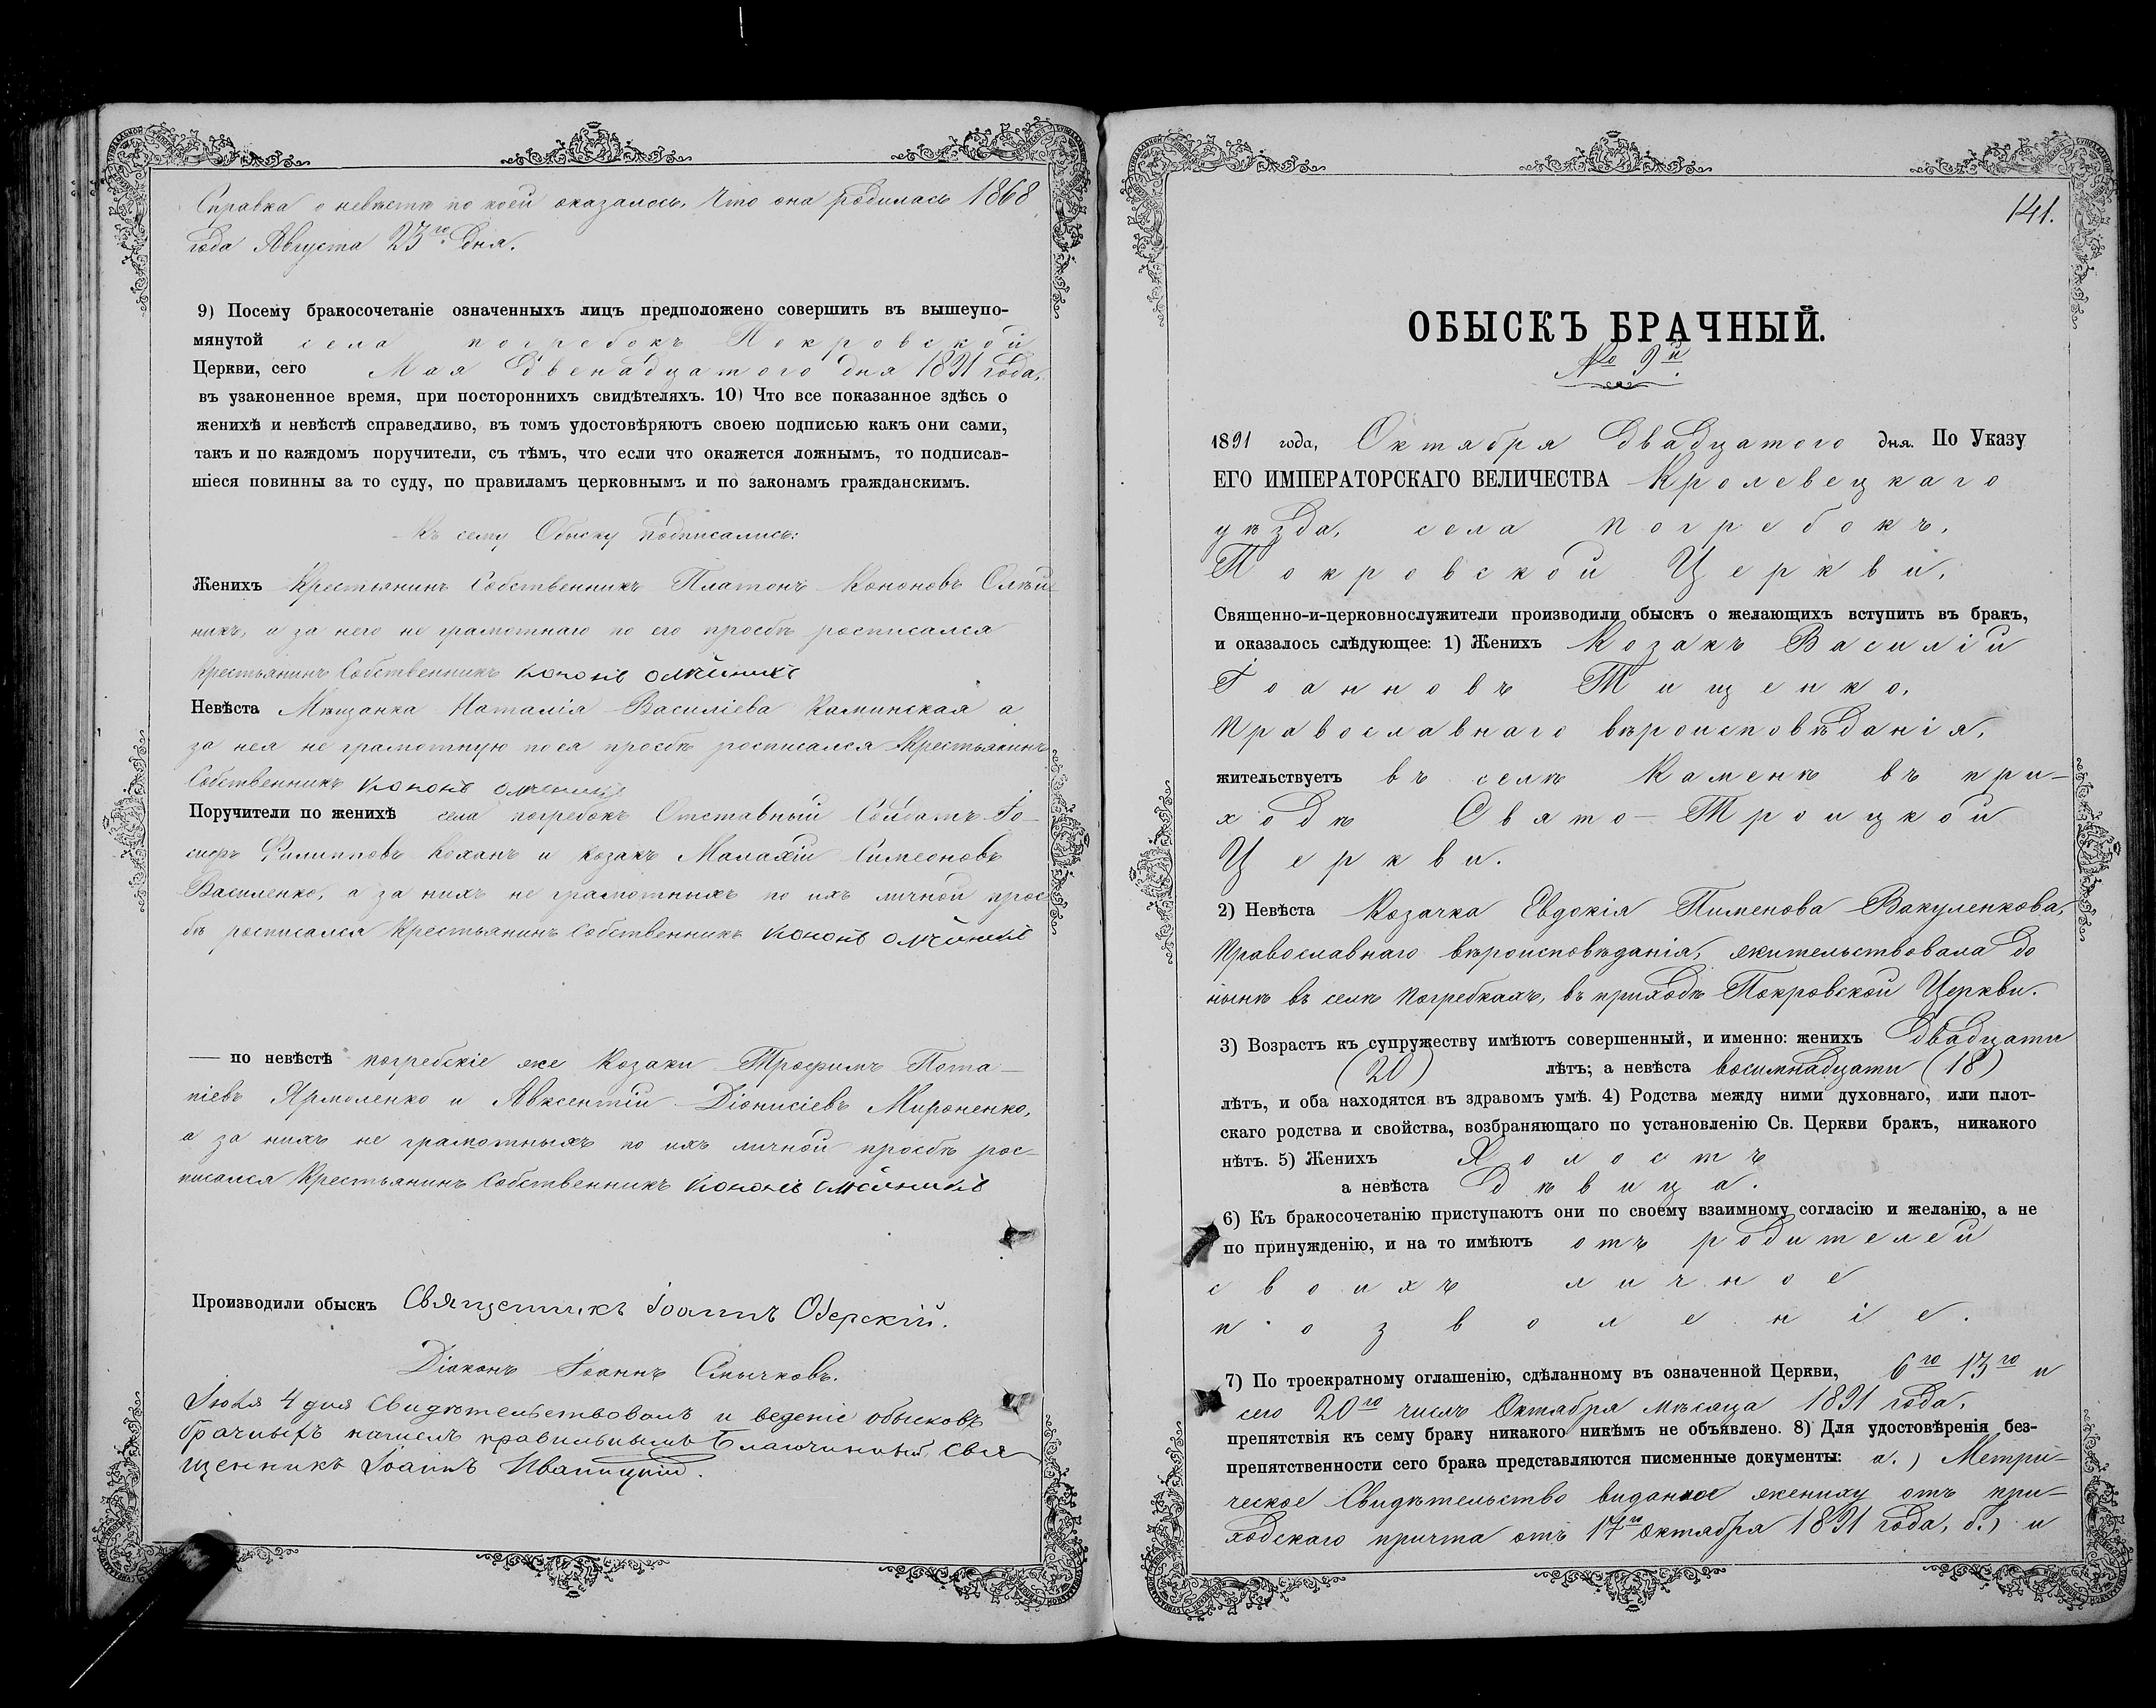 Справка о невѣстѣ по коей оказалось, что она родилась 1868
года Августа 23го дня.
9) Посему бракосочетаніе означенныхъ лицъ предположено совершить въ вышеупо-
мянутой села погребокъ Покровской
Церкви, сего Мая двенадцатого дня 1891 года,
въ узаконенное время, при постороннихъ свидѣтеляхъ. 10) Что все показанное здѣсь о
женихѣ и невѣстѣ справедливо, въ томъ удостовѣряютъ своею подписью какъ они сами,
такъ и по каждомъ поручители, съ тѣмъ, что если что окажется ложнымъ, то подписав-
шіеся повинны за то суду, по правиламъ церковнымъ и по законамъ гражданскимъ.
Къ сему Обыску подписались:
Женихъ Крестьянинъ Собственникъ Платонъ Кононовъ Олѣй
никъ, а за него не грамотнаго по его просбѣ росписался
Крестьянинъ Собственникъ Кононъ Олѣйникъ
Невѣста Мѣщанка Наталія Василіева Каминская а
за нея не грамотную по ея просбѣ росписался Крестьянинъ
Собственникъ Кононъ Олѣйникъ
Поручители по женихѣ села погребокъ Отставный Солдатъ Іо-
сифъ Филипповъ Коханъ и козакъ Малахій Симеоновъ
Василенко, а за нихъ не грамотныхъ по ихъ личной прос
бѣ росписался Крестьянинъ Собственникъ Кононъ Олѣйникъ
— по невѣстѣ погребскіе же Козаки Трофимъ Пота-
піевъ Ярмоленко и Авксентій Діонисіевъ Мироненко,
а за нихъ не грамотныхъ по ихъ личной просбѣ рос-
писался Крестьянинъ Собственникъ Кононъ Олѣйникъ
Производили обыскъ Священникъ Іоаннъ Озерскій.
Діаконъ Іоаннъ Смычковъ.
Іюля 4 дня Свидѣтельствовалъ и веденіе обысковъ
брачныхъ нашелъ правильнымъ Благочинный, Свя
щенникъ Іоаннъ Иваницкій.
141.
ОБЫСКЪ БРАЧНЫЙ.
№ 9й.
1891 года, Октября двадцатого дня. По Указу
ЕГО ИМПЕРАТОРСКАГО ВЕЛИЧЕСТВА Кролевецкаго
уѣзда, села погребокъ,
Покровской Церкви,
Священно-и-церковнослужители производили обыскъ о желающихъ вступить въ бракъ,
и оказалось слѣдующее: 1) Женихъ Козакъ Василій
Іоанновъ Тищенко,
Православнаго вѣроисповѣданія,
жительствуетъ въ селѣ Каменѣ въ при-
ходѣ Свято-Троицкой
Церкви.
2) Невѣста Козачка Евдокія Пименова Вакуленкова,
Православнаго вѣроисповѣданія, жительствовала до
нынѣ въ селѣ Погребкахъ, въ приходѣ Покровской Церкви.
3) Возрастъ къ супружеству имѣютъ совершенный, и именно: женихъ двадцати
(20) лѣтъ; а невѣста восимнадцати (18)
лѣтъ, и оба находятся въ здравомъ умѣ. 4) Родства между ними духовнаго, или плот-
скаго родства и свойства, возбраняющаго по установленію Св. Церкви бракъ, никакого
нѣтъ. 5) Женихъ Холостъ
а невѣста Дѣвица.
6) Къ бракосочетанію приступаютъ они по своему взаимному согласію и желанію, а не
по принужденію, и на то имѣютъ отъ родителей
своихъ личное
позволеніе.
7) По троекратному оглашенію, сдѣланному въ означенной Церкви, 6го 13го и
сего 20го числъ Октября мѣсяца 1891 года,
препятствія къ сему браку никакого никѣмъ не объявлено. 8) Для удостовѣренія без-
препятственности сего брака представляются писменные документы: а.) Метри-
ческое Свидѣтельство виданое жениху отъ при-
ходскаго причта отъ 17го Октября 1891 года, б.) и